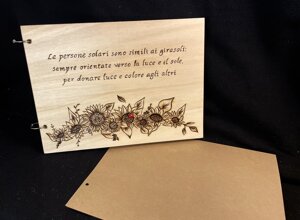 Le persone solari sono simili ai girasoli:
sempre orientate verso la luce e il sole,
per donare luce e colore agli altri